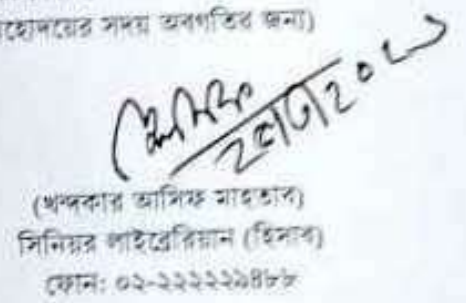 মহোদয়ের সদয় অবগতির জন্য)
(খন্দকার আসিফ মাহতাব)
সিনিয়র লাইব্রেরিয়ান (হিসাব)
ফোন: ০২-২২২২২৯৪৮৮